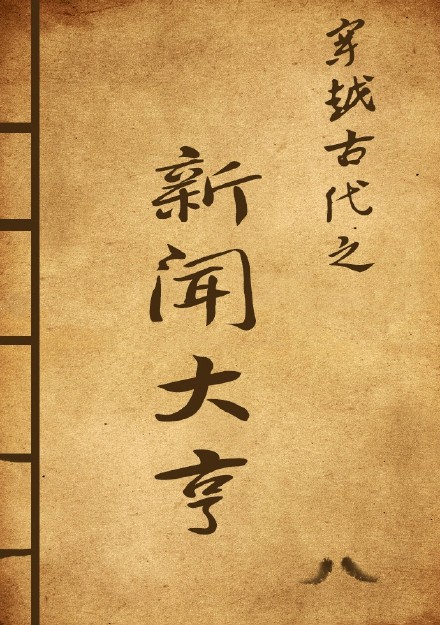 穿越古代之
新闻大亨